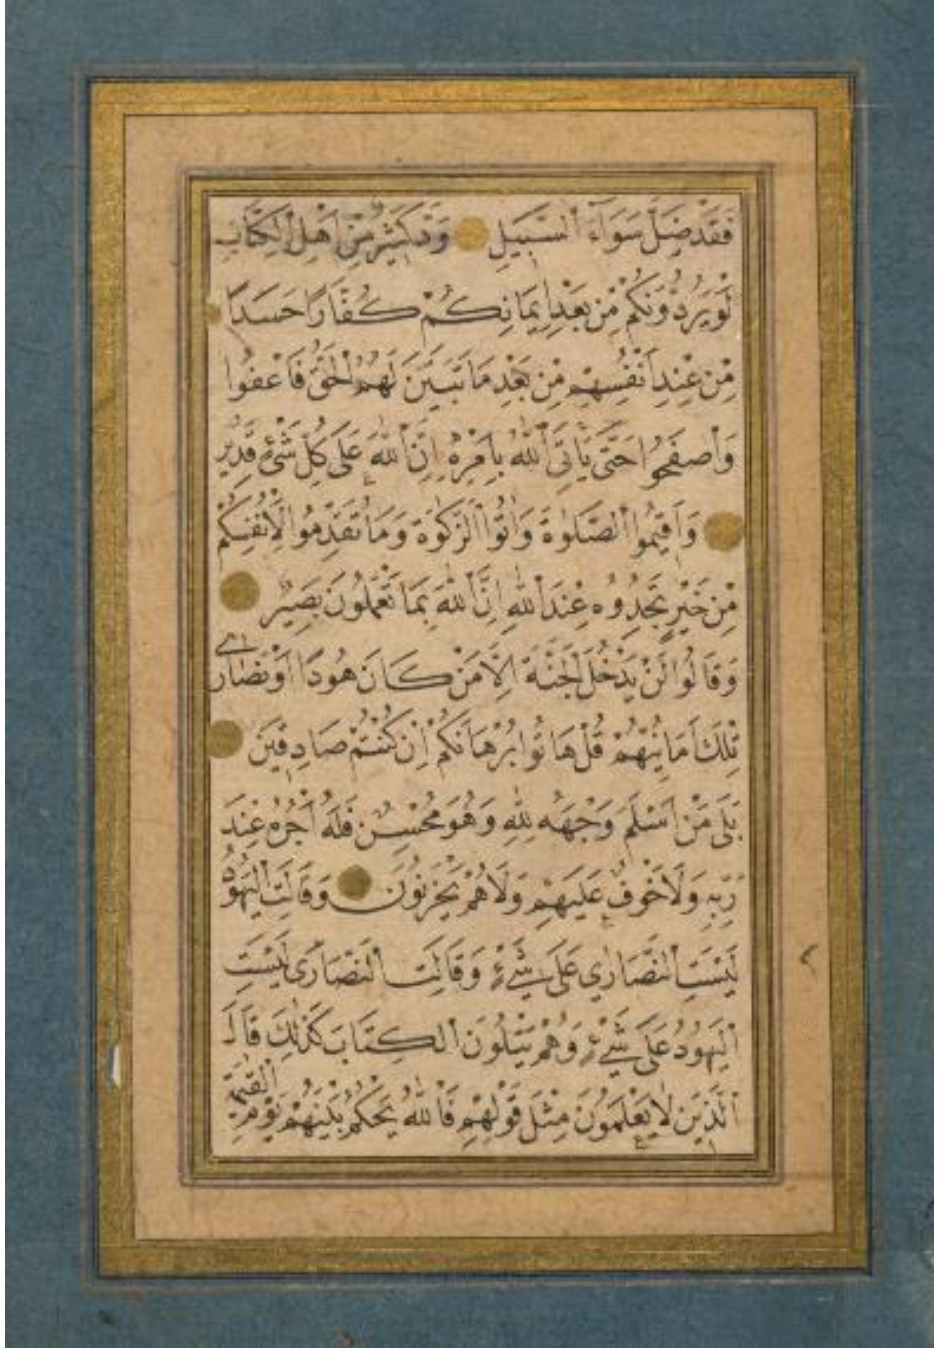 فَقَدْ ضَلَّ سَوَاءَ السَّبِيلِ وَدَّ كَثِيرٌ مِنْ اَهْلِ الْكِتَابِ
لَوْ يَرُدُّونَكُمْ مِنْ بَعْدِ اِيمَانِكُمْ كُفَّارًا حَسَدًا
مِنْ عِنْدِ اَنْفُسِهِمْ مِنْ بَعْدِ مَا تَبَيَّنَ لَهُمُ الْحَقُّ فَاعْفُوا
وَاصْفَحُوا حَتَّى يَأْتِيَ اللّٰهُ بِاَمْرِهِ اِنَّ اللّٰهَ عَلَى كُلِّ شَيْءٍ قَدِيرٌ
وَاَقِيمُوا الصَّلٰوةَ وَاٰتُوا الزَّكٰوةَ وَمَا تُقَدِّمُوا لِاَنْفُسِكُمْ
مِنْ خَيْرٍ تَجِدُوهُ عِنْدَ اللّٰهِ اِنَّ اللّٰهَ بِمَا تَعْمَلُونَ بَصِيرٌ
وَقَالُوا لَنْ يَدْخُلَ الْجَنَّةَ اِلَّا مَنْ كَانَ هُودًا اَوْ نَصَارَى
تِلْكَ اَمَانِيُّهُمْ قُلْ هَاتُوا بُرْهَانَكُمْ اِنْ كُنْتُمْ صَادِقِينَ
بَلَى مَنْ اَسْلَمَ وَجْهَهُ لِلّٰهِ وَهُوَ مُحْسِنٌ فَلَهُ اَجْرُهُ عِنْدَ
رَبِّهِ وَلَا خَوْفٌ عَلَيْهِمْ وَلَا هُمْ يَحْزَنُونَ وَقَالَتِ الْيَهُودُ
لَيْسَتِ النَّصَارٰى عَلَى شَيْءٍ وَقَالَتِ النَّصَارَى لَيْسَتِ
الْيَهُودُ عَلَى شَيْءٍ وَهُمْ يَتْلُونَ الْكِتَابَ كَذٰلِكَ قَالَ
الَّذِينَ لَا يَعْلَمُونَ مِثْلَ قَوْلِهِمْ فَاللّٰهُ يَحْكُمُ بَيْنَهُمْ يَوْمَ الْقِيٰمَةِ